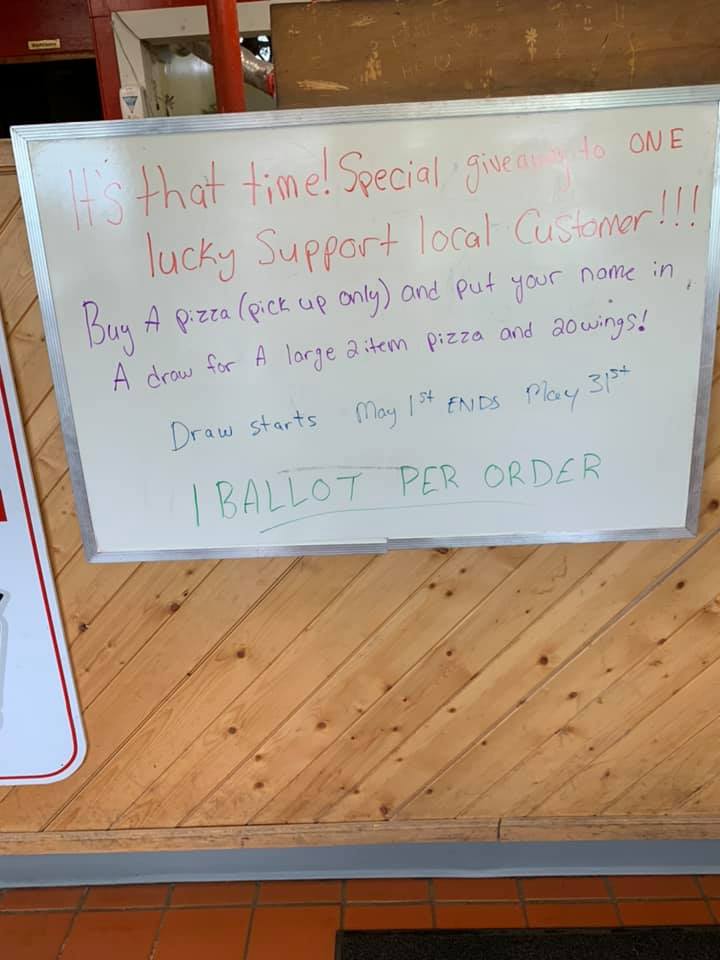 It's that time! Special giveaway to ONE
lucky Support local Customer!!!
Buy A pizza (pick up only) and put your name in
A draw for A large 2 item pizza and 20 wings!
Draw starts May 1st ENDS May 31st
1 BALLOT PER ORDER